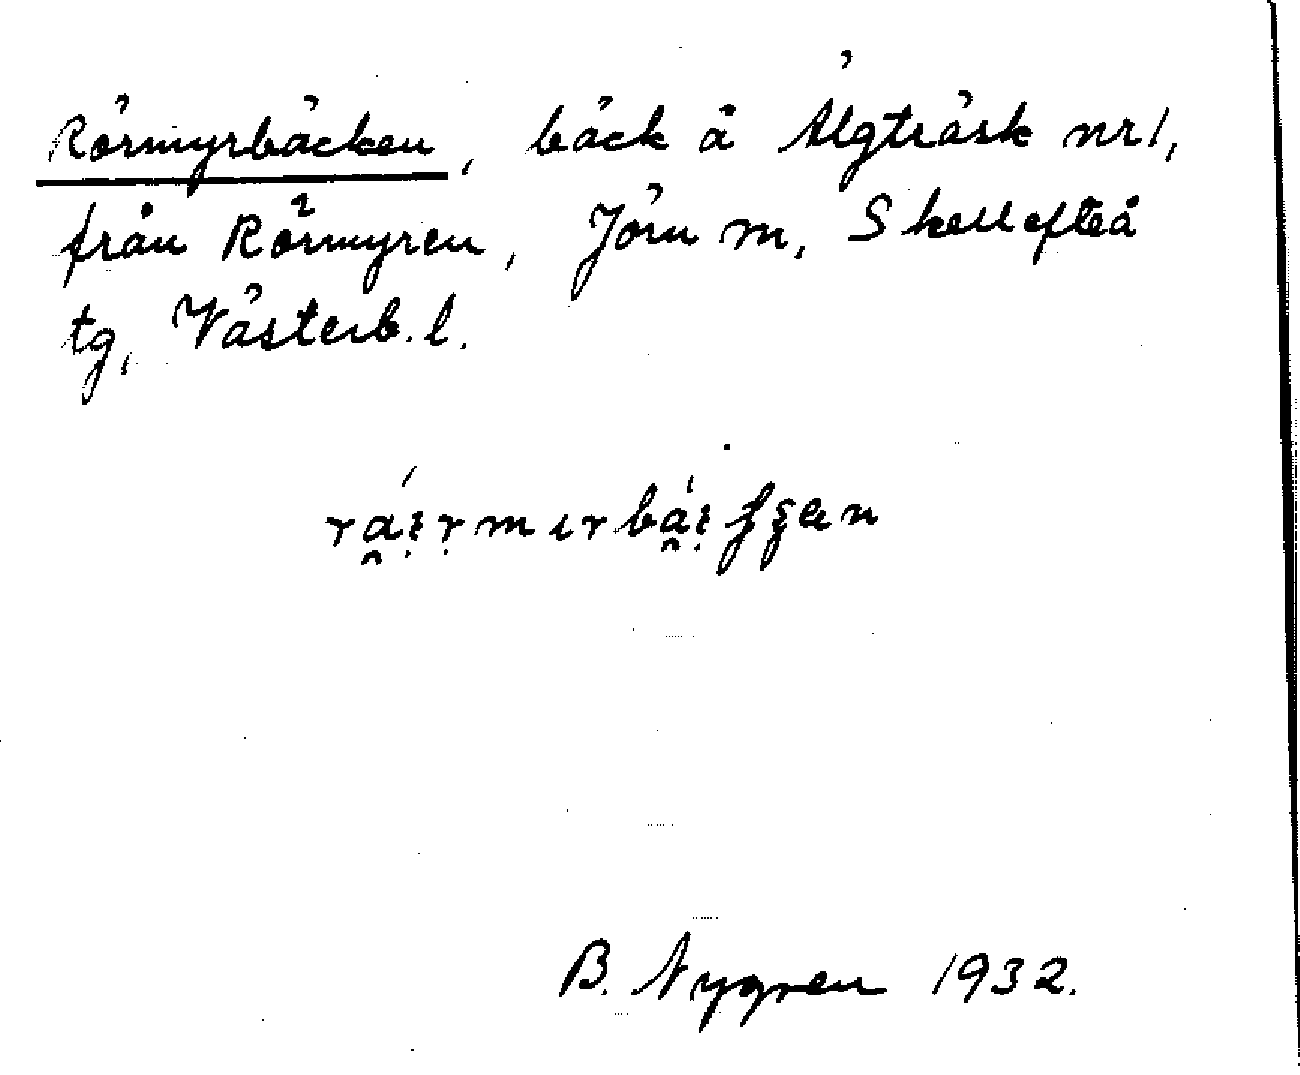 Rörmyrbäcken, bäck å Älgträsk nr 1,
från Rörmyren, Jörn m, Skellefteå
tg, Västerb. l.
B. Nygren 1932.